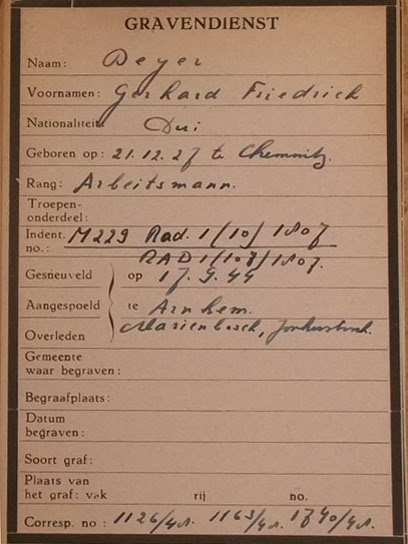 GRAVENDIENST
Naam: Beyer
Voornamen: Gerhard Friedrich
Nationaliteit: Dui
Geboren op: 21.12.27 te Chemnitz.
Rang: Arbeitsmann.
Troepen-
onderdeel:
Indent. M229 Rad. 1/(10)/1807
no.: RAD 1/(107)/1807.
Gesneuveld op 17.9.44
Aangespoeld te Arnhem.
Overleden Mariënbosch,
Gemeente
waar begraven:
Begraafplaats:
Datum
begraven:
Soort graf:
Plaats van
het graf: vak rij no.
Corresp. no: 1126/41. 1163/41. 1740/41.